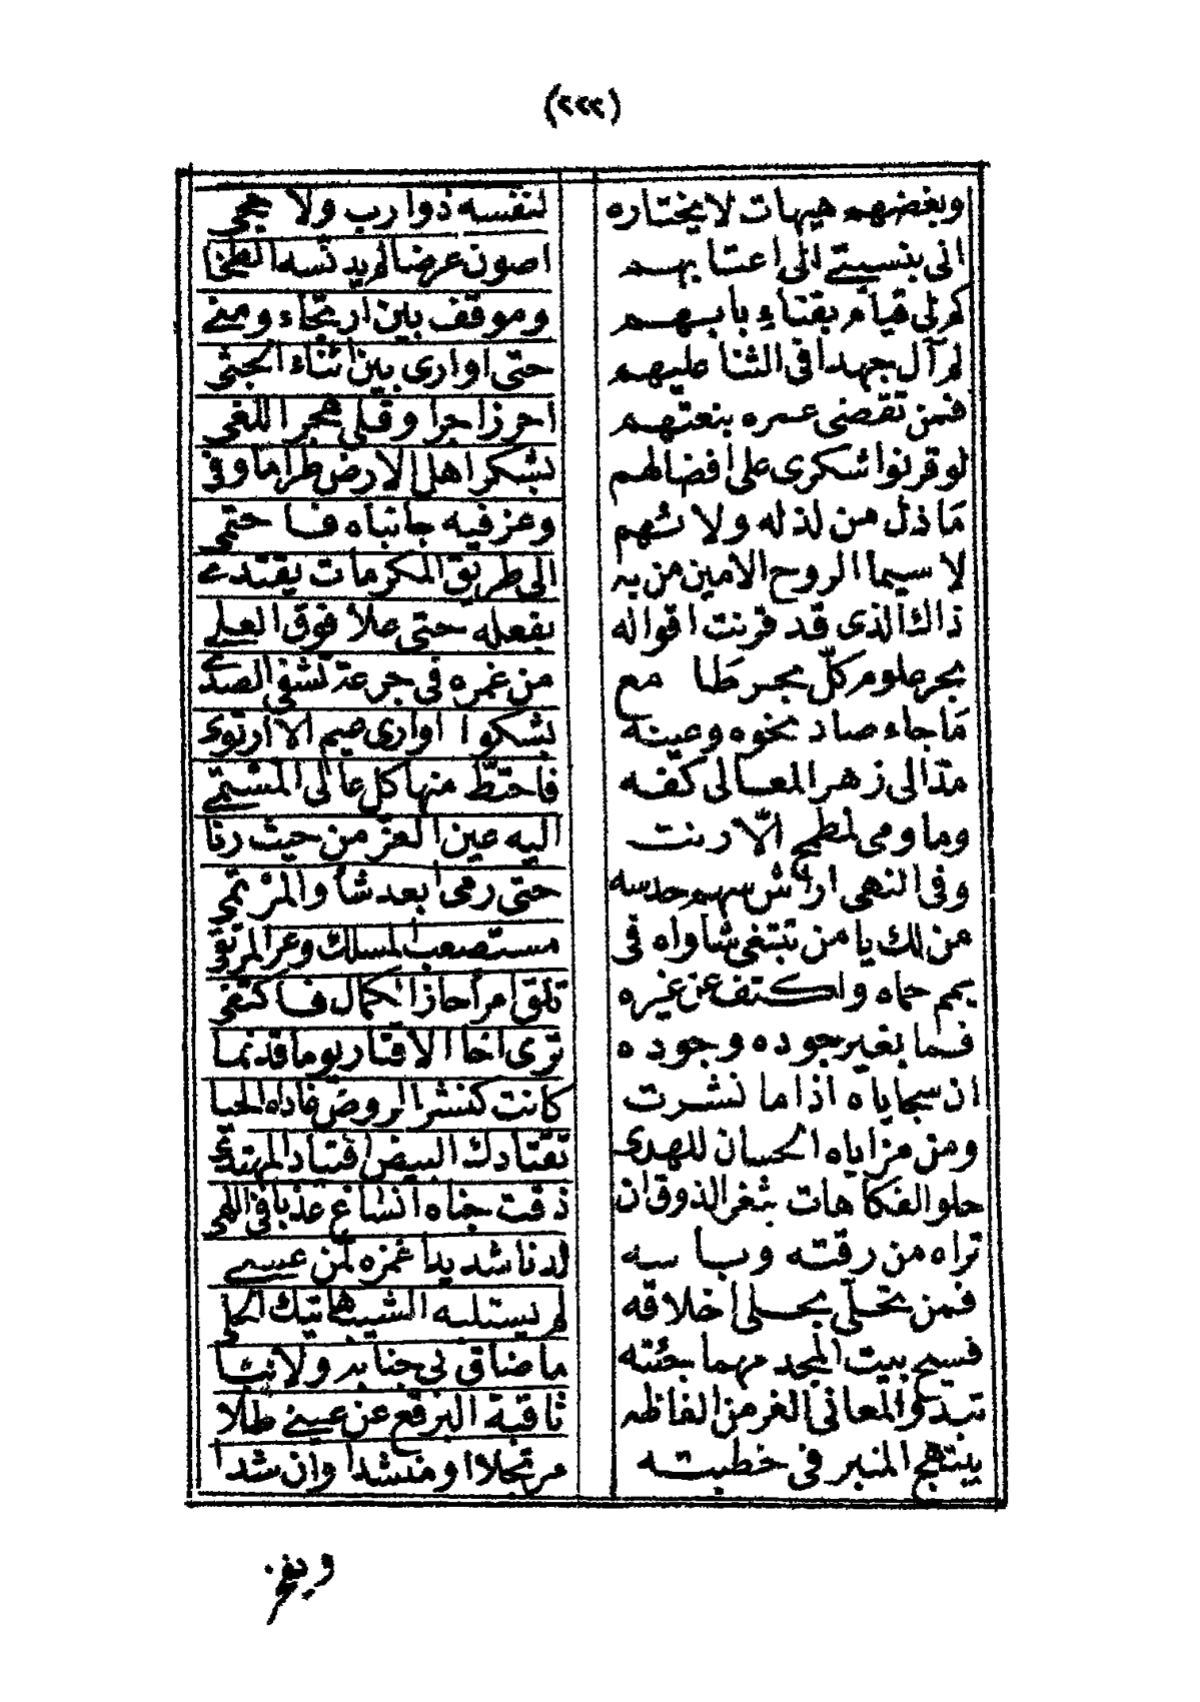 (٢٢٢)
وبغضهم هيهات لا يختاره لنفسه ذو ارب ولا حجى
انى بنسبتى الى اعتابهم اصون عرضا لم يدنسه الطخا
كم لى قيام بفناء بابهم وموقف بين ارتجاء ومنى
لم آل جهدا فى الثنا عليهم حتى اوارى بين اثناء الجثى
فمن تقضى عمره بنعتهم احرز اجرا وقلى هجر اللغى
لو قرنوا شكرى على افضالهم بشكر اهل الارض طرا ما وفى
ما ذل من لذ له ولائهم وعز فيه جانباه فاحتمى
لا سيما الروح الامين من به الى طريق المكرمات يقتدى
ذاك الذى قد قرنت اقواله بفعله حتى علا فوق العلى
بحر علوم كل بحر طامع من غمره فى جرعة تشفى الصدى
ما جاء صاد نحوه وعينه بشكوا اوارى ضيم الا ارتوى
مذ الى زهر المعالى كفه فاحتط منها كل عالى المستمى
وما ومى لمطمح الا رنت اليه عين العز من حيث رنا
وفى النهى اراش سهم حدسه حتى رمى ابعد شأو المرتمى
من لك يا من تبتغى شاواه فى مستصعب المسلك وعر المرتقى
يمم حماه واكتف عن غيره تلق امرأ حاز الكمال فاكتفى
فما بغير جوده وجوده ترى اخا الاقتار يوما قد نما
ان سجاياه اذا ما نشرت كانت كنشر الروض غاداه الحيا
ومن مزاياه الحسان للهدى تقتادك البيض اقتياد المهتدى
حلو الفكاهات بثغر الذوق ان ذقت جناه انساغ عذبا فى اللهى
تراه من رقته وباسه لدنا شديدا غمزه لمن عسى
فمن تحلى بحلى اخلاقه لم يستلبه الشيب هاتيك الحلى
فسيح بيت المجد مهما جئته ما ضاق بى جنابه ولا نبا
تبدو المعانى الغر من الفاظه ثاقبة البرقع عن عينى طلا
يبتهج المنبر فى خطبته مرتجلا او منشدا وان شدا